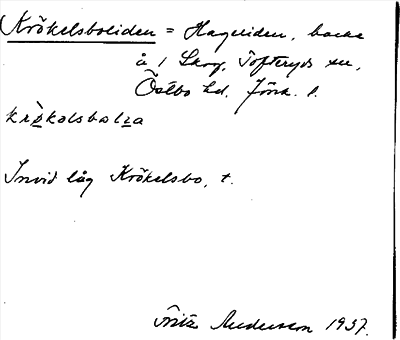 Krökelsboliden = Hageliden, backe
å 1 Skog, Tofteryds sn,
Östbo hd. Jönk. l.
krökəlsbolia
Invid låg Krökelsbo, t.
Fritz Andersson 1937.